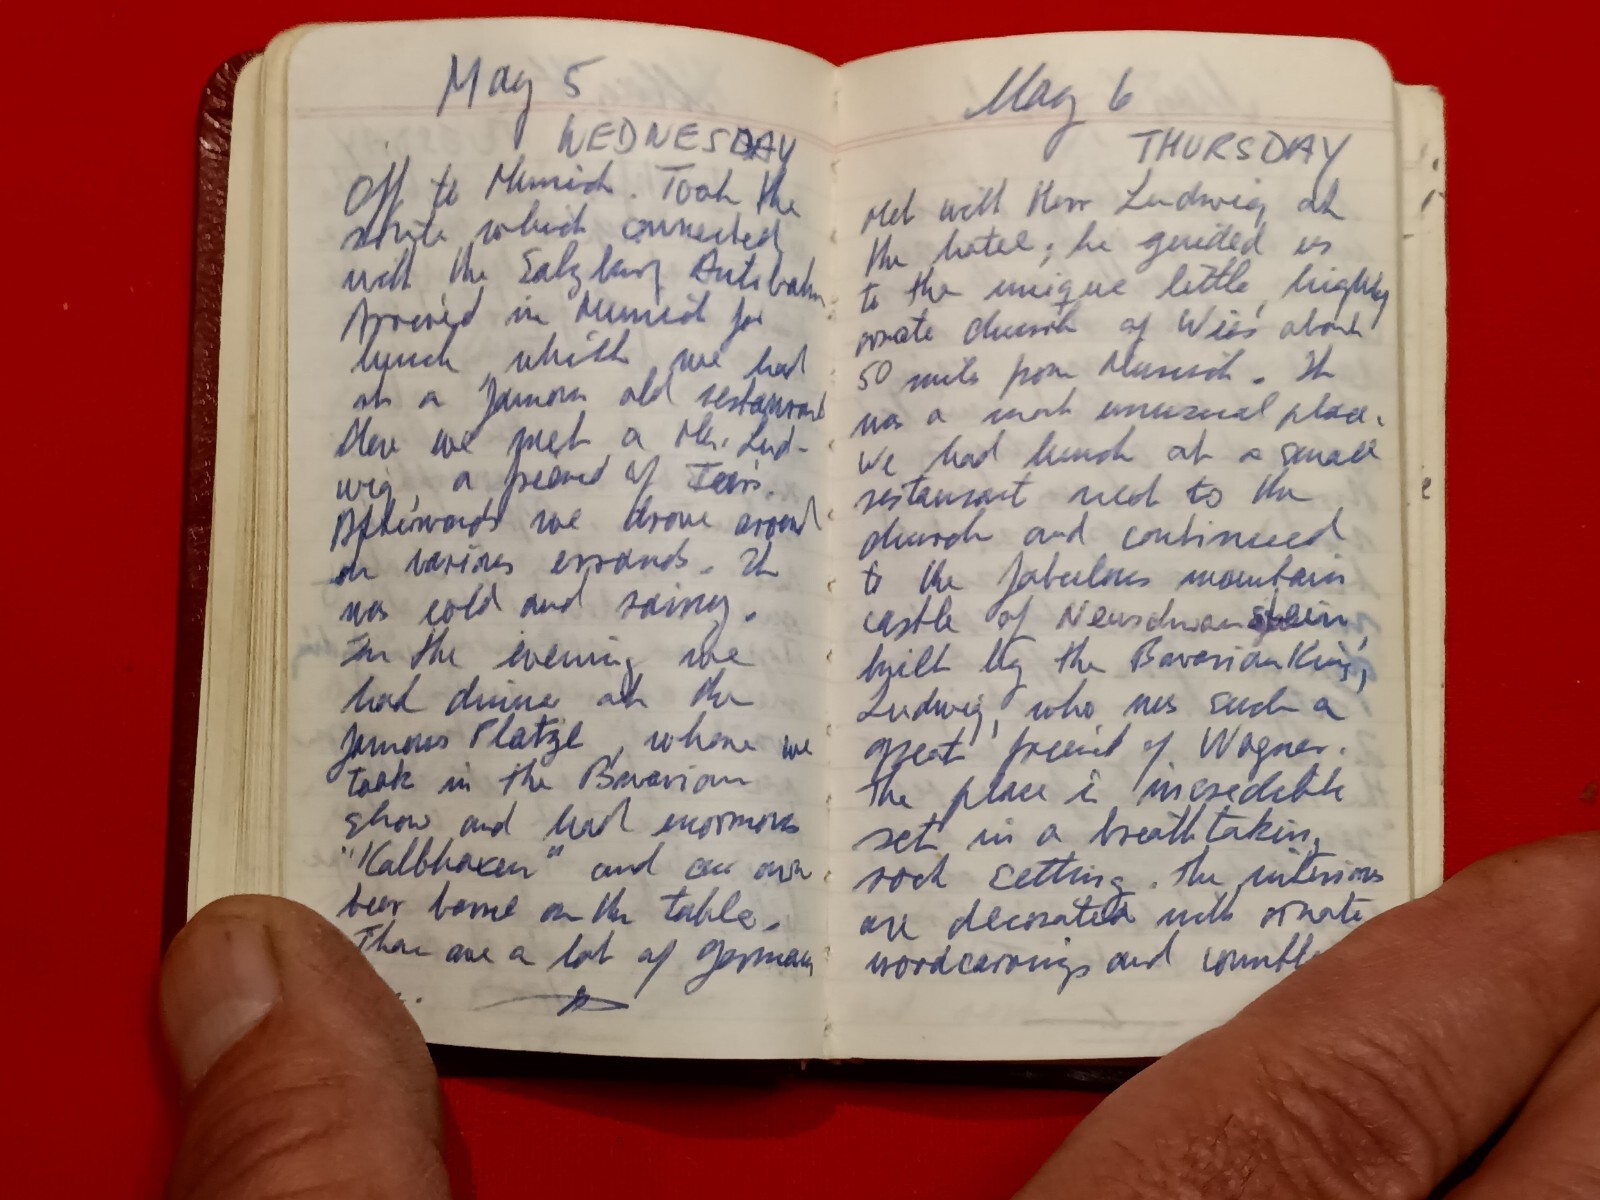 May 5
WEDNESDAY
Off to Munich. Took the
route which connected
with the Salzburg Autobahn.
Arrived in Munich for
lunch which we had
at a famous old restaurant
Here we met a Mr. Lud-
wig, a friend of
Afterwards we drove around
on various errands. It
was cold and rainy.
In the evening we
had dinner at the
famous Platzl, where we
took in the Bavarian
show and had enormous
"Kalbhaxen" and our own
beer on the table.
There are a lot of german
May 6
THURSDAY
Met with Herr Ludwig at
the hotel; he guided us
to the unique little, highly
ornate church of Wies about
50 miles from Munich. It
was a most unusual place.
We had lunch at a small
restaurant next to the
church and continued
to the fabulous mountain
castle of Neuschwanstein,
built by the Bavarian King,
Ludwig, who was such a
great friend of Wagner.
The place is incredible
set in a breathtaking
rock setting. The interiors
are decorated with ornate
woodcarvings and